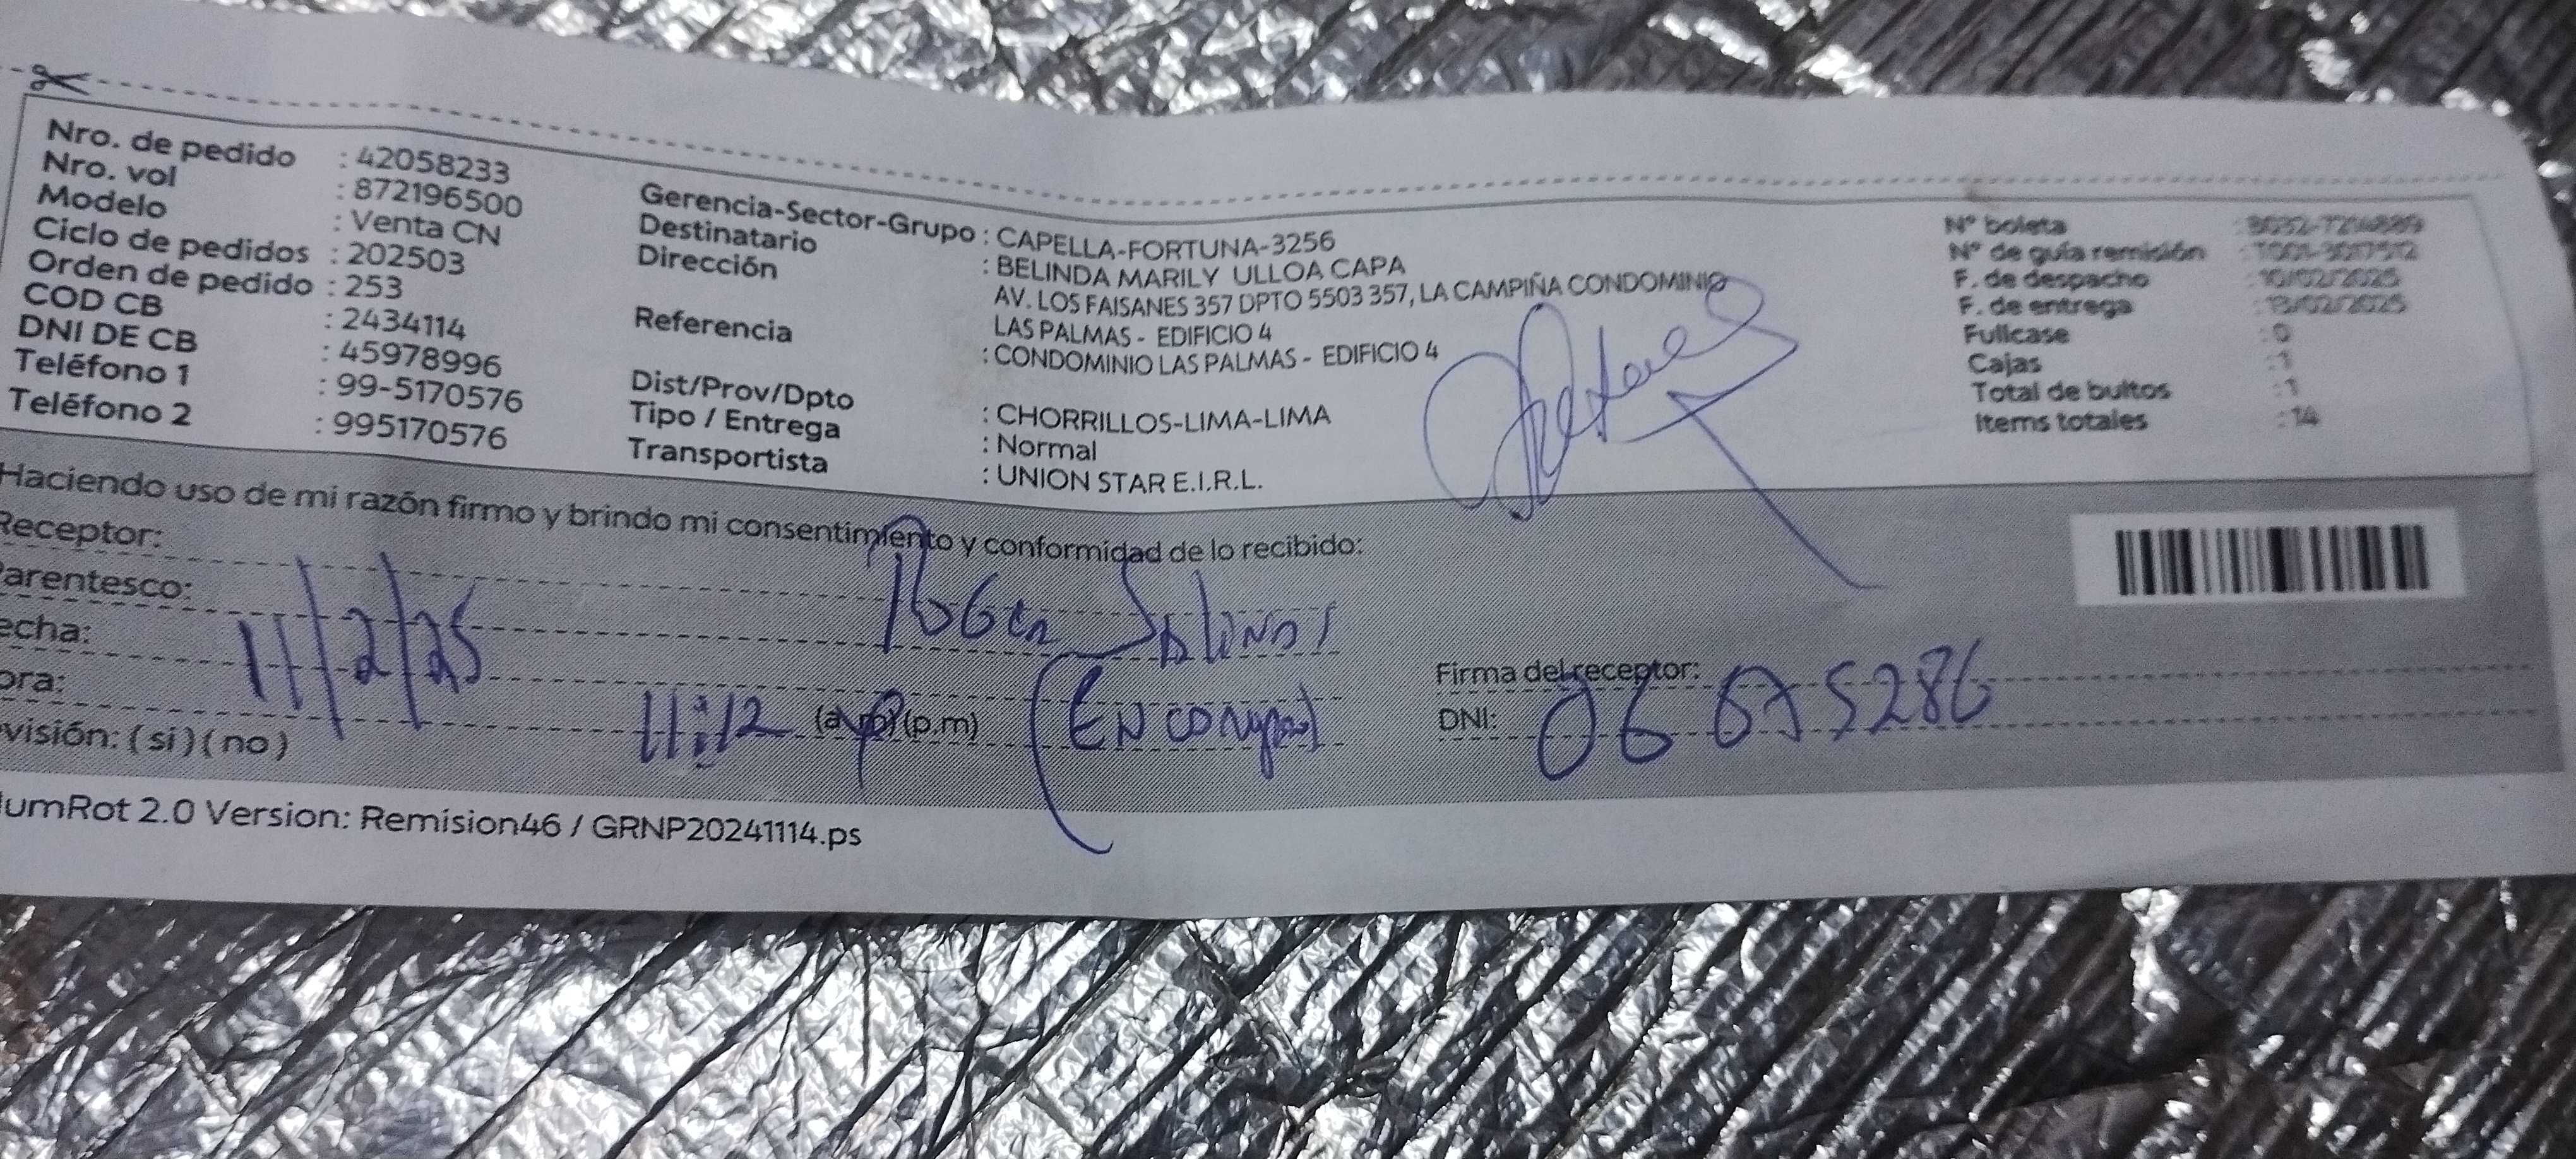 Nro. de pedido : 42058233
Nro. vol : 872196500
Modelo : Venta CN
Ciclo de pedidos : 202503
Orden de pedido : 253
COD CB : 2434114
DNI DE CB : 45978996
Teléfono 1 : 99-5170576
Teléfono 2 : 995170576
Gerencia-Sector-Grupo : CAPELLA-FORTUNA-3256
Destinatario : BELINDA MARILY ULLOA CAPA
Dirección AV. LOS FAISANES 357 DPTO 5503 357, LA CAMPIÑA CONDOMINIO
LAS PALMAS - EDIFICIO 4
Referencia : CONDOMINIO LAS PALMAS - EDIFICIO 4
Dist/Prov/Dpto : CHORRILLOS-LIMA-LIMA
Tipo / Entrega : Normal
Transportista : UNION STAR E.I.R.L.
Nº boleta
Nº de guía remisión
F. de despacho : 10/02/2025
F. de entrega : 13/02/2025
Fullcase : 0
Cajas : 1
Total de bultos : 1
Items totales : 14
Haciendo uso de mi razón firmo y brindo mi consentimiento y conformidad de lo recibido:
Receptor:
arentesco: Salinas
echa: 11/2/25
ora: 11:12 (p.m)
visión: ( si ) ( no )
Firma del receptor:
DNI:
umRot 2.0 Version: Remision46 / GRNP20241114.ps